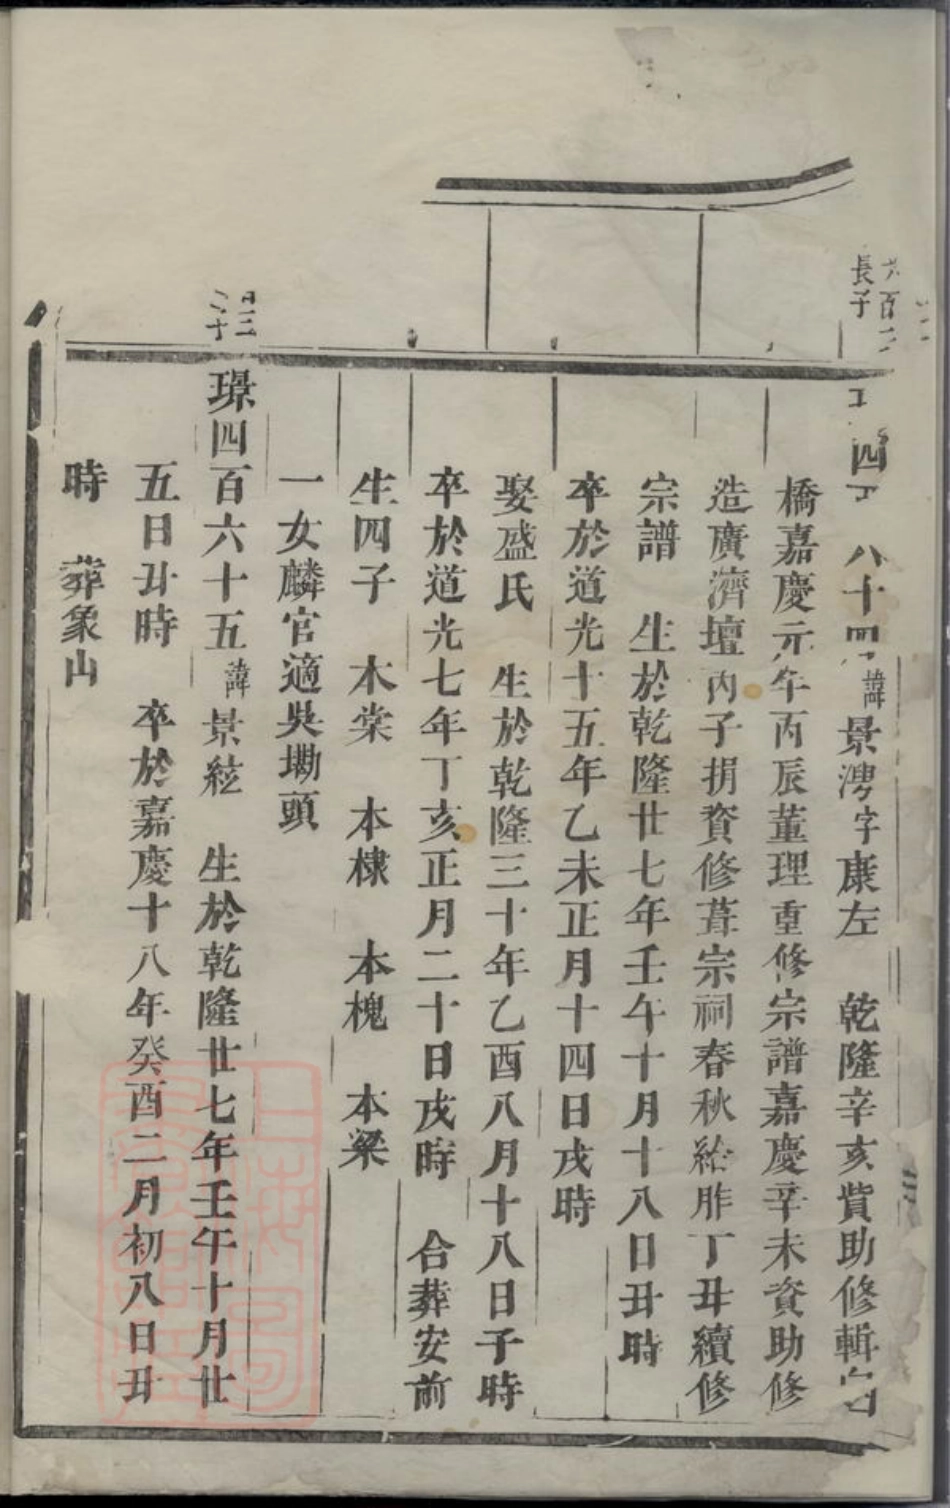 六百
長子
四 八十四 諱景㴋字康左 乾隆辛亥貲助修輯
橋嘉慶元年丙辰董理重修宗譜嘉慶辛未資助修
造廣濟壇丙子捐資修葺宗祠春秋給胙丁丑續修
宗譜 生於乾隆廿七年壬午十月十八日丑時
卒於道光十五年乙未正月十四日戌時
娶盛氏 生於乾隆三十年乙酉八月十八日子時
卒於道光七年丁亥正月二十日戌時 合葬安前
生四子 木棠 本棣 本槐 本梁
一女麟官適吳墈頭
璟四百六十五諱景絃 生於乾隆廿七年壬午十月廿
五日丑時 卒於嘉慶十八年癸酉二月初八日丑
時 葬象山